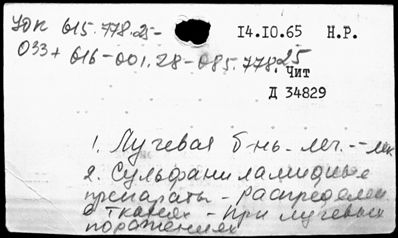 УДК 615.778.25- 14.10.65 Н.Р.
033+616-001.28-085.778.25
Чит
Д 34829
1. Лучевая б-нь-леч.--лек.
2. Сульфаниламидные
препараты - распределен.
в тканях - при лучевых
поражениях